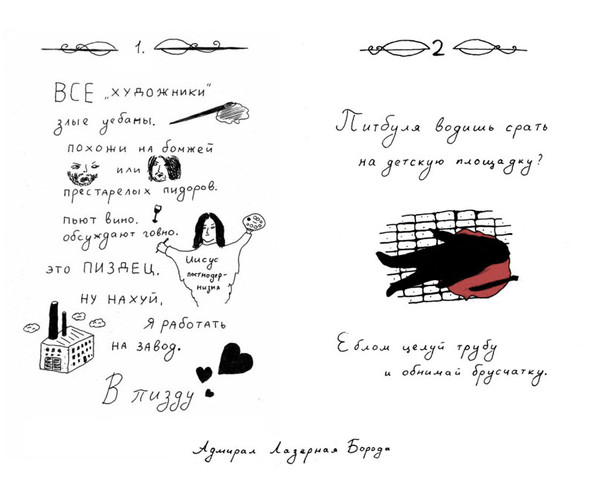 1.
ВСЕ „художники“
злые уебаны.
похожи на бомжей
или
престарелых пидоров.
пьют вино.
обсуждают говно.
Иисус
постмодер-
низма
это ПИЗДЕЦ.
ну нахуй,
я работать
на завод.
В пизду
2
Питбуля водишь срать
на детскую площадку?
Еблом целуй трубу
и обнимай брусчатку.
Адмирал Лазерная Борода